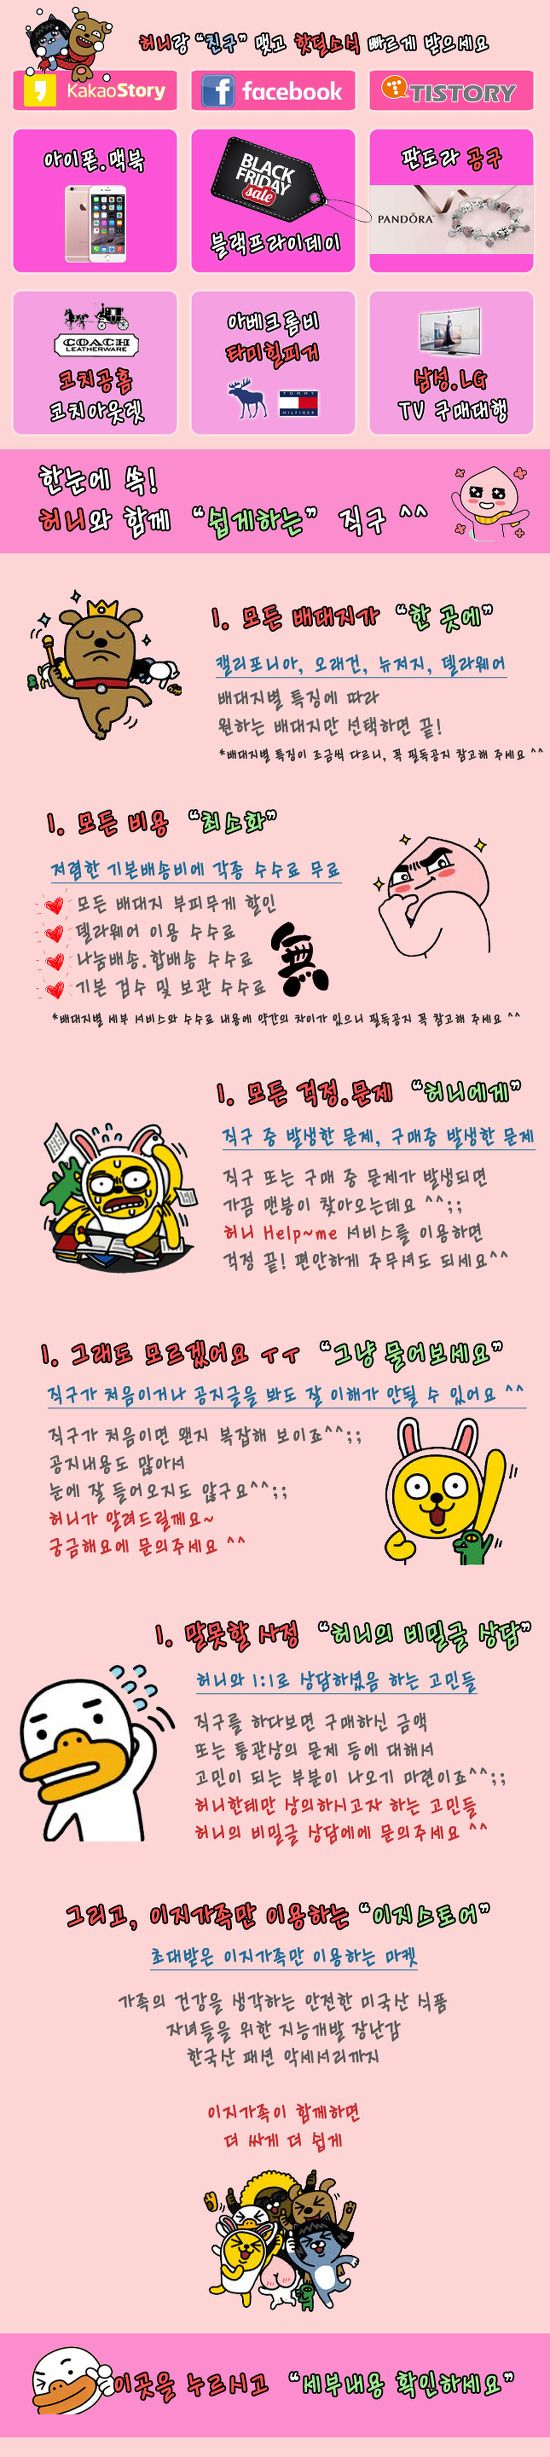 허니랑 “친구” 맺고 핫딜소식 빠르게 받으세요
KakaoStory
facebook
TISTORY
아이폰.맥북
BLACK
FRIDAY
sale
블랙프라이데이
판도라 공구
PANDÖRA
COACH
LEATHERWARE
코치공홈
코치아웃렛
아베크롬비
타미힐피거
TOMMY
HILFIGER
삼성.LG
TV 구매대행
한눈에 쏙!
허니와 함께 “쉽게하는” 직구 ^^
1. 모든 배대지가 “한 곳에”
캘리포니아, 오래건, 뉴저지, 델라웨어
배대지별 특징에 따라
원하는 배대지만 선택하면 끝!
*배대지별 특징이 조금씩 다르니, 꼭 필독공지 참고해 주세요 ^^
1. 모든 비용 “최소화”
저렴한 기본배송비에 각종 수수료 무료
모든 배대지 부피무게 할인
델라웨어 이용 수수료
나눔배송.합배송 수수료
기본 검수 및 보관 수수료
無
*배대지별 세부 서비스와 수수료 내용에 약간의 차이가 있으니 필독공지 꼭 참고해 주세요 ^^
1. 모든 걱정.문제 “허니에게”
직구 중 발생한 문제, 구매중 발생한 문제
직구 또는 구매 중 문제가 발생되면
가끔 맨붕이 찾아오는데요 ^^;;
허니 Help~me 서비스를 이용하면
걱정 끝! 편안하게 주무셔도 되세요^^
1. 그래도 모르겠어요 ㅜㅜ “그냥 물어보세요”
직구가 처음이거나 공지글을 봐도 잘 이해가 안될 수 있어요 ^^
직구가 처음이면 왠지 복잡해 보이죠^^;;
공지내용도 많아서
눈에 잘 들어오지도 않구요^^;;
허니가 알려드릴께요~
궁금해요에 문의주세요 ^^
1. 말못할 사정 “허니의 비밀글 상담”
허니와 1:1로 상담하셨음 하는 고민들
직구를 하다보면 구매하신 금액
또는 통관상의 문제 등에 대해서
고민이 되는 부분이 나오기 마련이죠^^;;
허니한테만 상의하시고자 하는 고민들
허니의 비밀글 상담에에 문의주세요 ^^
그리고, 이지가족만 이용하는 “이지스토어”
초대받은 이지가족만 이용하는 마켓
가족의 건강을 생각하는 안전한 미국산 식품
자녀들을 위한 지능개발 장난감
한국산 패션 악세서리까지
이지가족이 함께하면
더 싸게 더 쉽게
이곳을 누르시고 “세부내용 확인하세요”